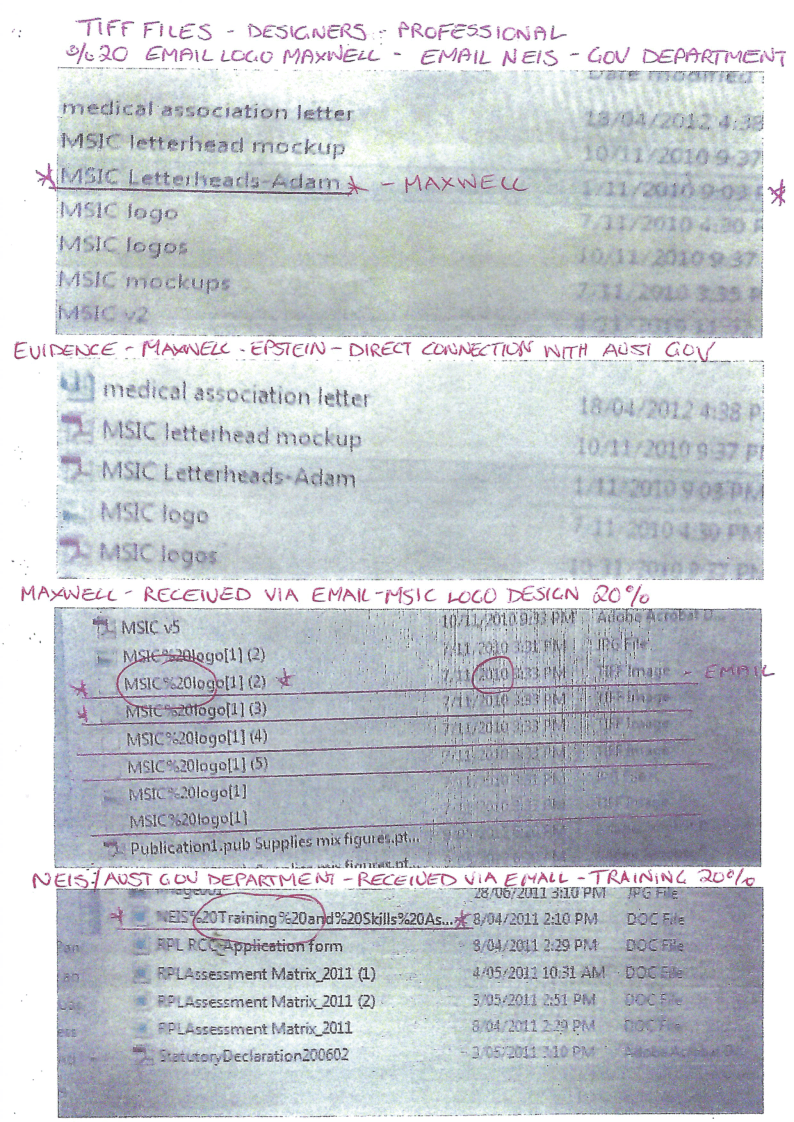 TIFF FILES - DESIGNERS - PROFESSIONAL
%20 EMAIL LOGO MAXWELL - EMAIL NEIS - GOV DEPARTMENT
Date modified
medical association letter 18/04/2012 4:38
MSIC letterhead mockup 10/11/2010 9:37
MSIC Letterheads-Adam - MAXWELL 1/11/2010 9:03 P
MSIC logo 7/11/2010 4:30 P
MSIC logos 10/11/2010 9:37
MSIC mockups 7/11/2010 3:35 P
MSIC v2
EVIDENCE - MAXWELL - EPSTEIN - DIRECT CONNECTION WITH AUST GOV
medical association letter 18/04/2012 4:38 P
MSIC letterhead mockup 10/11/2010 9:37 PM
MSIC Letterheads-Adam 1/11/2010 9:03 PM
MSIC logo 7/11/2010 4:30 PM
MSIC logos 10/11/2010 9:37 PM
MAXWELL - RECEIVED VIA EMAIL - MSIC LOGO DESIGN 20%
MSIC v5 10/11/2010 9:33 PM Adobe Acrobat D...
MSIC%20logo[1] (2) 7/11/2010 3:31 PM JPG File
MSIC%20logo[1] (2) 7/11/2010 3:33 PM TIFF Image - EMAIL
MSIC%20logo[1] (3) 7/11/2010 3:33 PM TIFF Image
MSIC%20logo[1] (4) 7/11/2010 3:33 PM TIFF Image
MSIC%20logo[1] (5) 7/11/2010 3:33 PM TIFF Image
MSIC%20logo[1] 7/11/2010 3:31 PM JPG File
MSIC%20logo[1] 7/11/2010 3:33 PM TIFF Image
Publication1.pub Supplies mix figures.pt...
NEIS/AUST GOV DEPARTMENT - RECEIVED VIA EMAIL - TRAINING 20%
28/06/2011 3:10 PM JPG File
NEIS%20Training%20and%20Skills%20As... 8/04/2011 2:10 PM DOC File
RPL RCC Application form 8/04/2011 2:29 PM DOC File
RPLAssessment Matrix_2011 (1) 4/05/2011 10:31 AM DOC File
RPLAssessment Matrix_2011 (2) 3/05/2011 2:51 PM DOC File
RPLAssessment Matrix_2011 8/04/2011 2:29 PM DOC File
StatutoryDeclaration200602 3/05/2011 3:10 PM Adobe Acrobat D